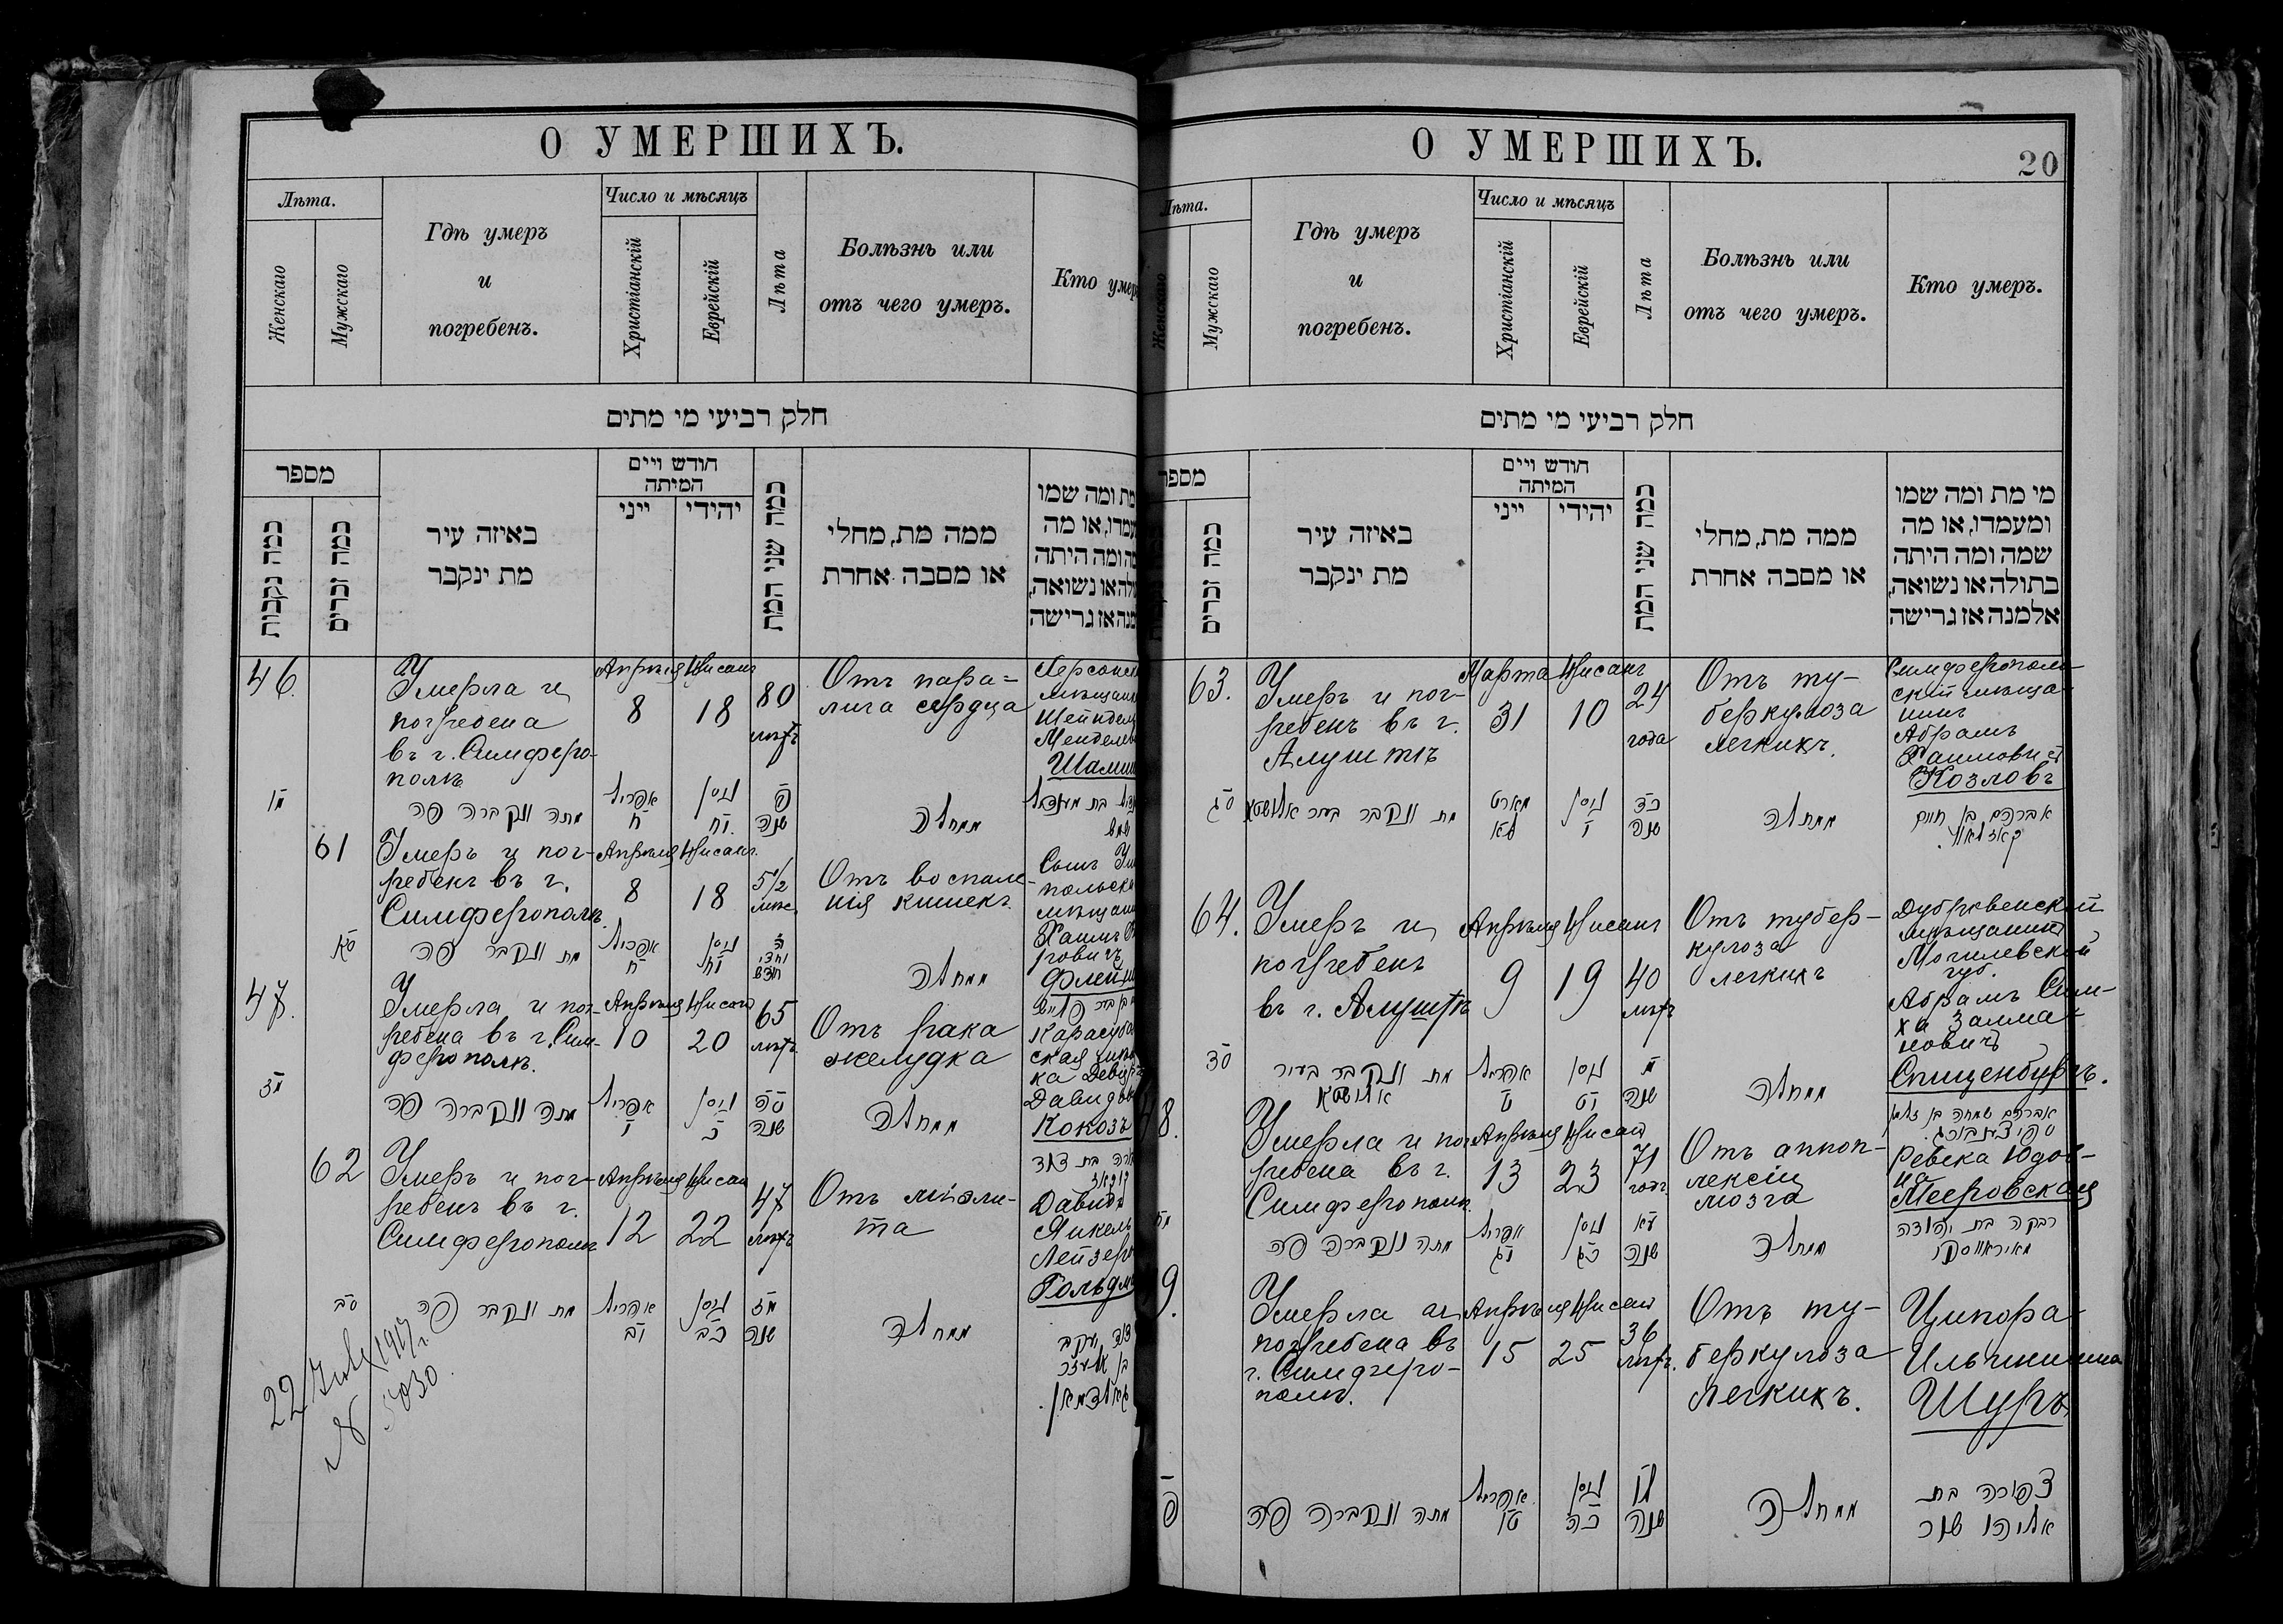 О УМЕРШИХЪ.
Лѣта.
Женскаго
Мужскаго
Гдѣ умеръ
и
погребенъ.
Число и мѣсяцъ
Христіанскій
Еврейскій
Лѣта
Болѣзнь или
отъ чего умеръ.
Кто умер
חלק רביעי מי מתים
מספר
כמה נקבות
כמה זכרים
באיזה עיר
מת ינקבר
חודש ויים
המיתה
ייני
יהודי
כמה שני המת
ממה מת, מחלי
או מסבה אחרת
מת ומה שמו
עמדו, או מה
מה ומה היתה
ולה או נשואה,
מנה אז גרישה
46.
Умерла и
погребена
въ г. Симферо-
полѣ
Апрѣля
8
Нисанъ
18
80
лѣтъ
Отъ пара=
лича сердца
Херсонск
мѣщанк
Шейндел
Менделев
Шамш
מתה ונקברה פה
אפריל
ח
ניסן
יח
פ
שנה
ממחלה
61
Умеръ и пог-
ребенъ въ г.
Симферополѣ
Апрѣля
8
Нисанъ
18
5 1/2
мѣс.
Отъ воспале-
нія кишекъ
Сынъ
польск
мѣщан
Хаимъ
ровичъ
סא
מת ונקבר פה
אפריל
ח
ניסן
יח
ממחלה
47.
Умерла и пог-
ребена въ г. Сим-
ферополѣ.
Апрѣля
10
Нисанъ
20
65
лѣтъ
Отъ рака
желудка
Карасуба
ская
ка
Давидов
Кокозъ
מז
מתה ונקברה פה
אפריל
י
ניסן
כ
סה
שנה
ממחלה
62
Умеръ и пог-
ребенъ въ г.
Симферополѣ
Апрѣля
12
Нисан
22
47
лѣтъ
Отъ міэли-
та
Давидъ
Янкель
Лейзеро
Гольдм
סב
מת ונקבר פה
אפריל
יב
ניסן
כב
מז
שנה
ממחלה
דוד יעקב
בן אליעזר
גאלדמאן.
22 July 1917 г.
N 5030.
О УМЕРШИХЪ.
20
Лѣта.
Женскаго
Мужскаго
Гдѣ умеръ
и
погребенъ.
Число и мѣсяцъ
Христіанскій
Еврейскій
Лѣта
Болѣзнь или
отъ чего умеръ.
Кто умеръ.
חלק רביעי מי מתים
מספר
כמה זכרים
באיזה עיר
מת ינקבר
חודש ויים
המיתה
ייני
יהודי
כמה שני המת
ממה מת, מחלי
או מסבה אחרת
מי מת ומה שמו
ומעמדו, או מה
שמה ומה היתה
בתולה או נשואה,
אלמנה אז גרישה
63.
Умеръ и пог-
ребенъ въ г.
Алуштѣ
Марта
31
Нисанъ
10
24
года
Отъ ту-
беркулоза
легкихъ.
Симферополь-
скій мѣща-
нинъ
Абрамъ
Хаимовичъ
Козловъ
סג
מת ונקבר בעיר אלושטא
מארט
לא
ניסן
י
כד
שנה
ממחלה
אברהם בן חיים
קאזלאוו.
64.
Умеръ и
погребенъ
въ г. Алуштѣ
Апрѣля
9
Нисанъ
19
40
лѣтъ
Отъ тубер-
кулоза
легкихъ
Дубровенскій
мѣщанинъ
Могилевской
губ.
Абрамъ Сим-
ха Залма-
новичъ
Спиценбургъ.
סד
מת ונקבר בעיר
אלושטא
אפריל
ט
ניסן
יט
מ
שנה
ממחלה
אברהם שמחה בן זלמן
ספיצענבורג.
48.
Умерла и пог
ребена въ г.
Симферополѣ
Апрѣля
13
Нисан
23
71
годъ
Отъ аппоп-
лексіи
мозга
Ревека Юдов-
на
Мееровская
מתה ונקברה פה
אפריל
יג
ניסן
כג
עא
שנה
ממחלה
רבקה בת יהודה
מאיראווסקי
9.
Умерла и
погребена въ
г. Симферо-
полѣ.
Апрѣля
15
Нисан
25
36
лѣтъ.
Отъ ту-
беркулоза
легкихъ.
Ципора
Ильинишна
Шуръ
מתה ונקברה פה
אפריל
טו
ניסן
כה
לו
שנה
ממחלה
צפורה בת
אליהו שור